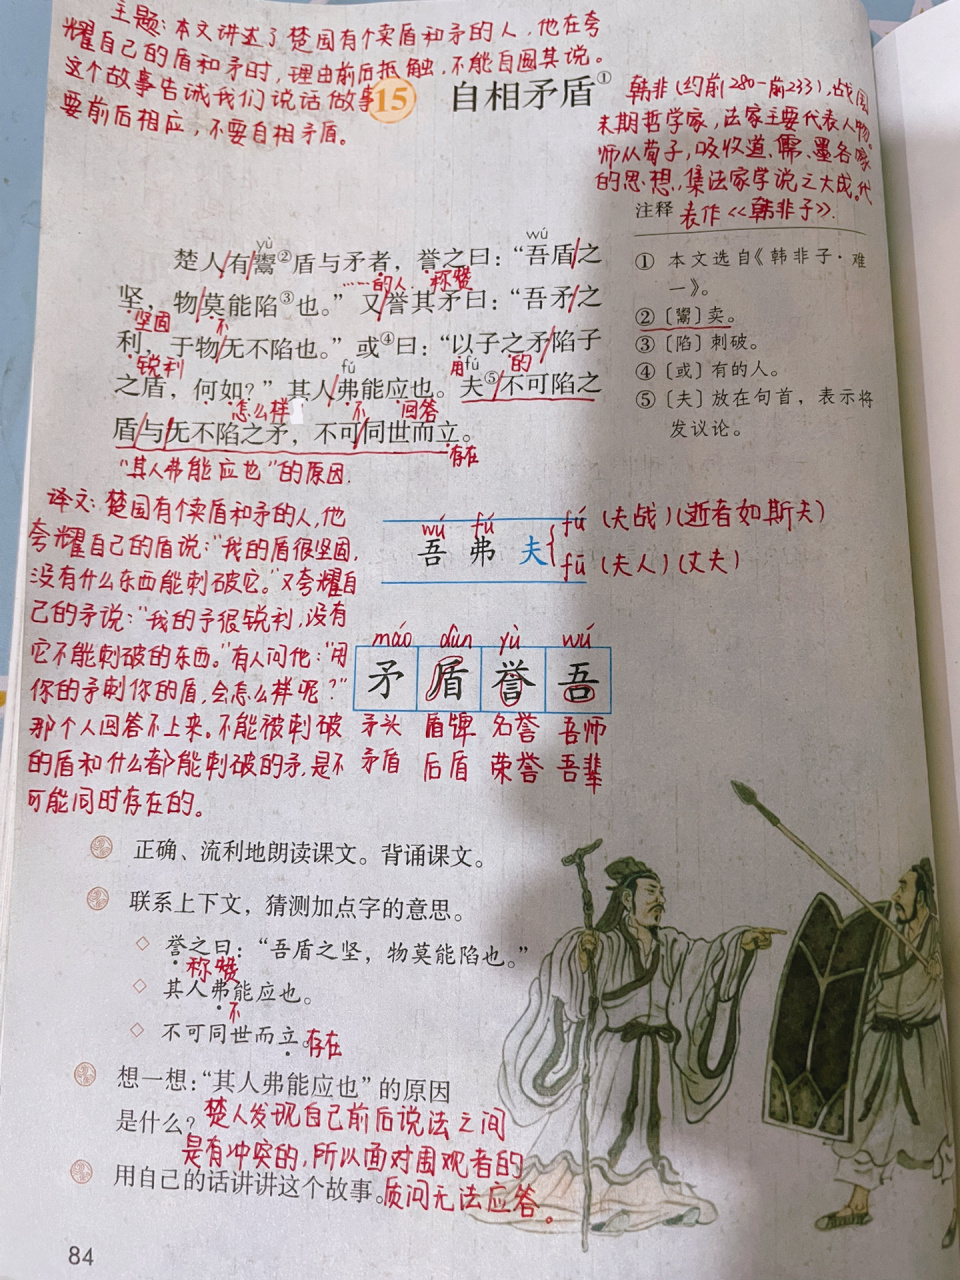 主题:本文讲述了楚国有个卖盾和矛的人,他在夸
耀自己的盾和矛时,理由前后抵触,不能自圆其说。
这个故事告诫我们说话做事
要前后相应,不要自相矛盾。
15 自相矛盾①
韩非(约前280-前233),战国
末期哲学家,法家主要代表人物。
师从荀子,吸收道、儒、墨各家
的思想,集法家学说之大成。代
表作《韩非子》.
注释
① 本文选自《韩非子·难
一》。
②〔鬻〕卖。
③〔陷〕刺破。
④〔或〕有的人。
⑤〔夫〕放在句首,表示将
发议论。
yù wú
楚人/有/鬻②盾与矛者,誉之曰:“吾盾/之
……的人. 称赞
坚,物/莫能陷③也。”又/誉其矛曰:“吾矛/之
坚固 不
利,于物/无不陷也。”或④曰:“以子之矛/陷子
锐利 用 的
fú fú
之盾,何如?”其人/弗能应也。夫⑤/不可陷之
怎么样 不 回答
盾/与/无不陷之矛,不可/同世而立。
存在
“其人弗能应也”的原因.
译文:楚国有个卖盾和矛的人,他
夸耀自己的盾说:“我的盾很坚固,
没有什么东西能刺破它。”又夸耀自
己的矛说:“我的予很锐利,没有
它不能刺破的东西。”有人问他:“用
你的矛刺你的盾,会怎么样呢?”
那个人回答不上来。不能被刺破
的盾和什么都能刺破的矛,是不
可能同时存在的。
wú fú
吾 弗 夫
fú (夫战)(逝者如斯夫)
fū (夫人)(丈夫)
máo dùn yù wú
矛 盾 誉 吾
矛头 盾牌 名誉 吾师
矛盾 后盾 荣誉 吾辈
正确、流利地朗读课文。背诵课文。
联系上下文,猜测加点字的意思。
◇ 誉之曰:“吾盾之坚,物莫能陷也。”
称赞
◇ 其人弗能应也。
不
◇ 不可同世而立。
存在
想一想:“其人弗能应也”的原因
是什么?
楚人发现自己前后说法之间
是有冲突的,所以面对围观者的
质问无法应答。
用自己的话讲讲这个故事。
84